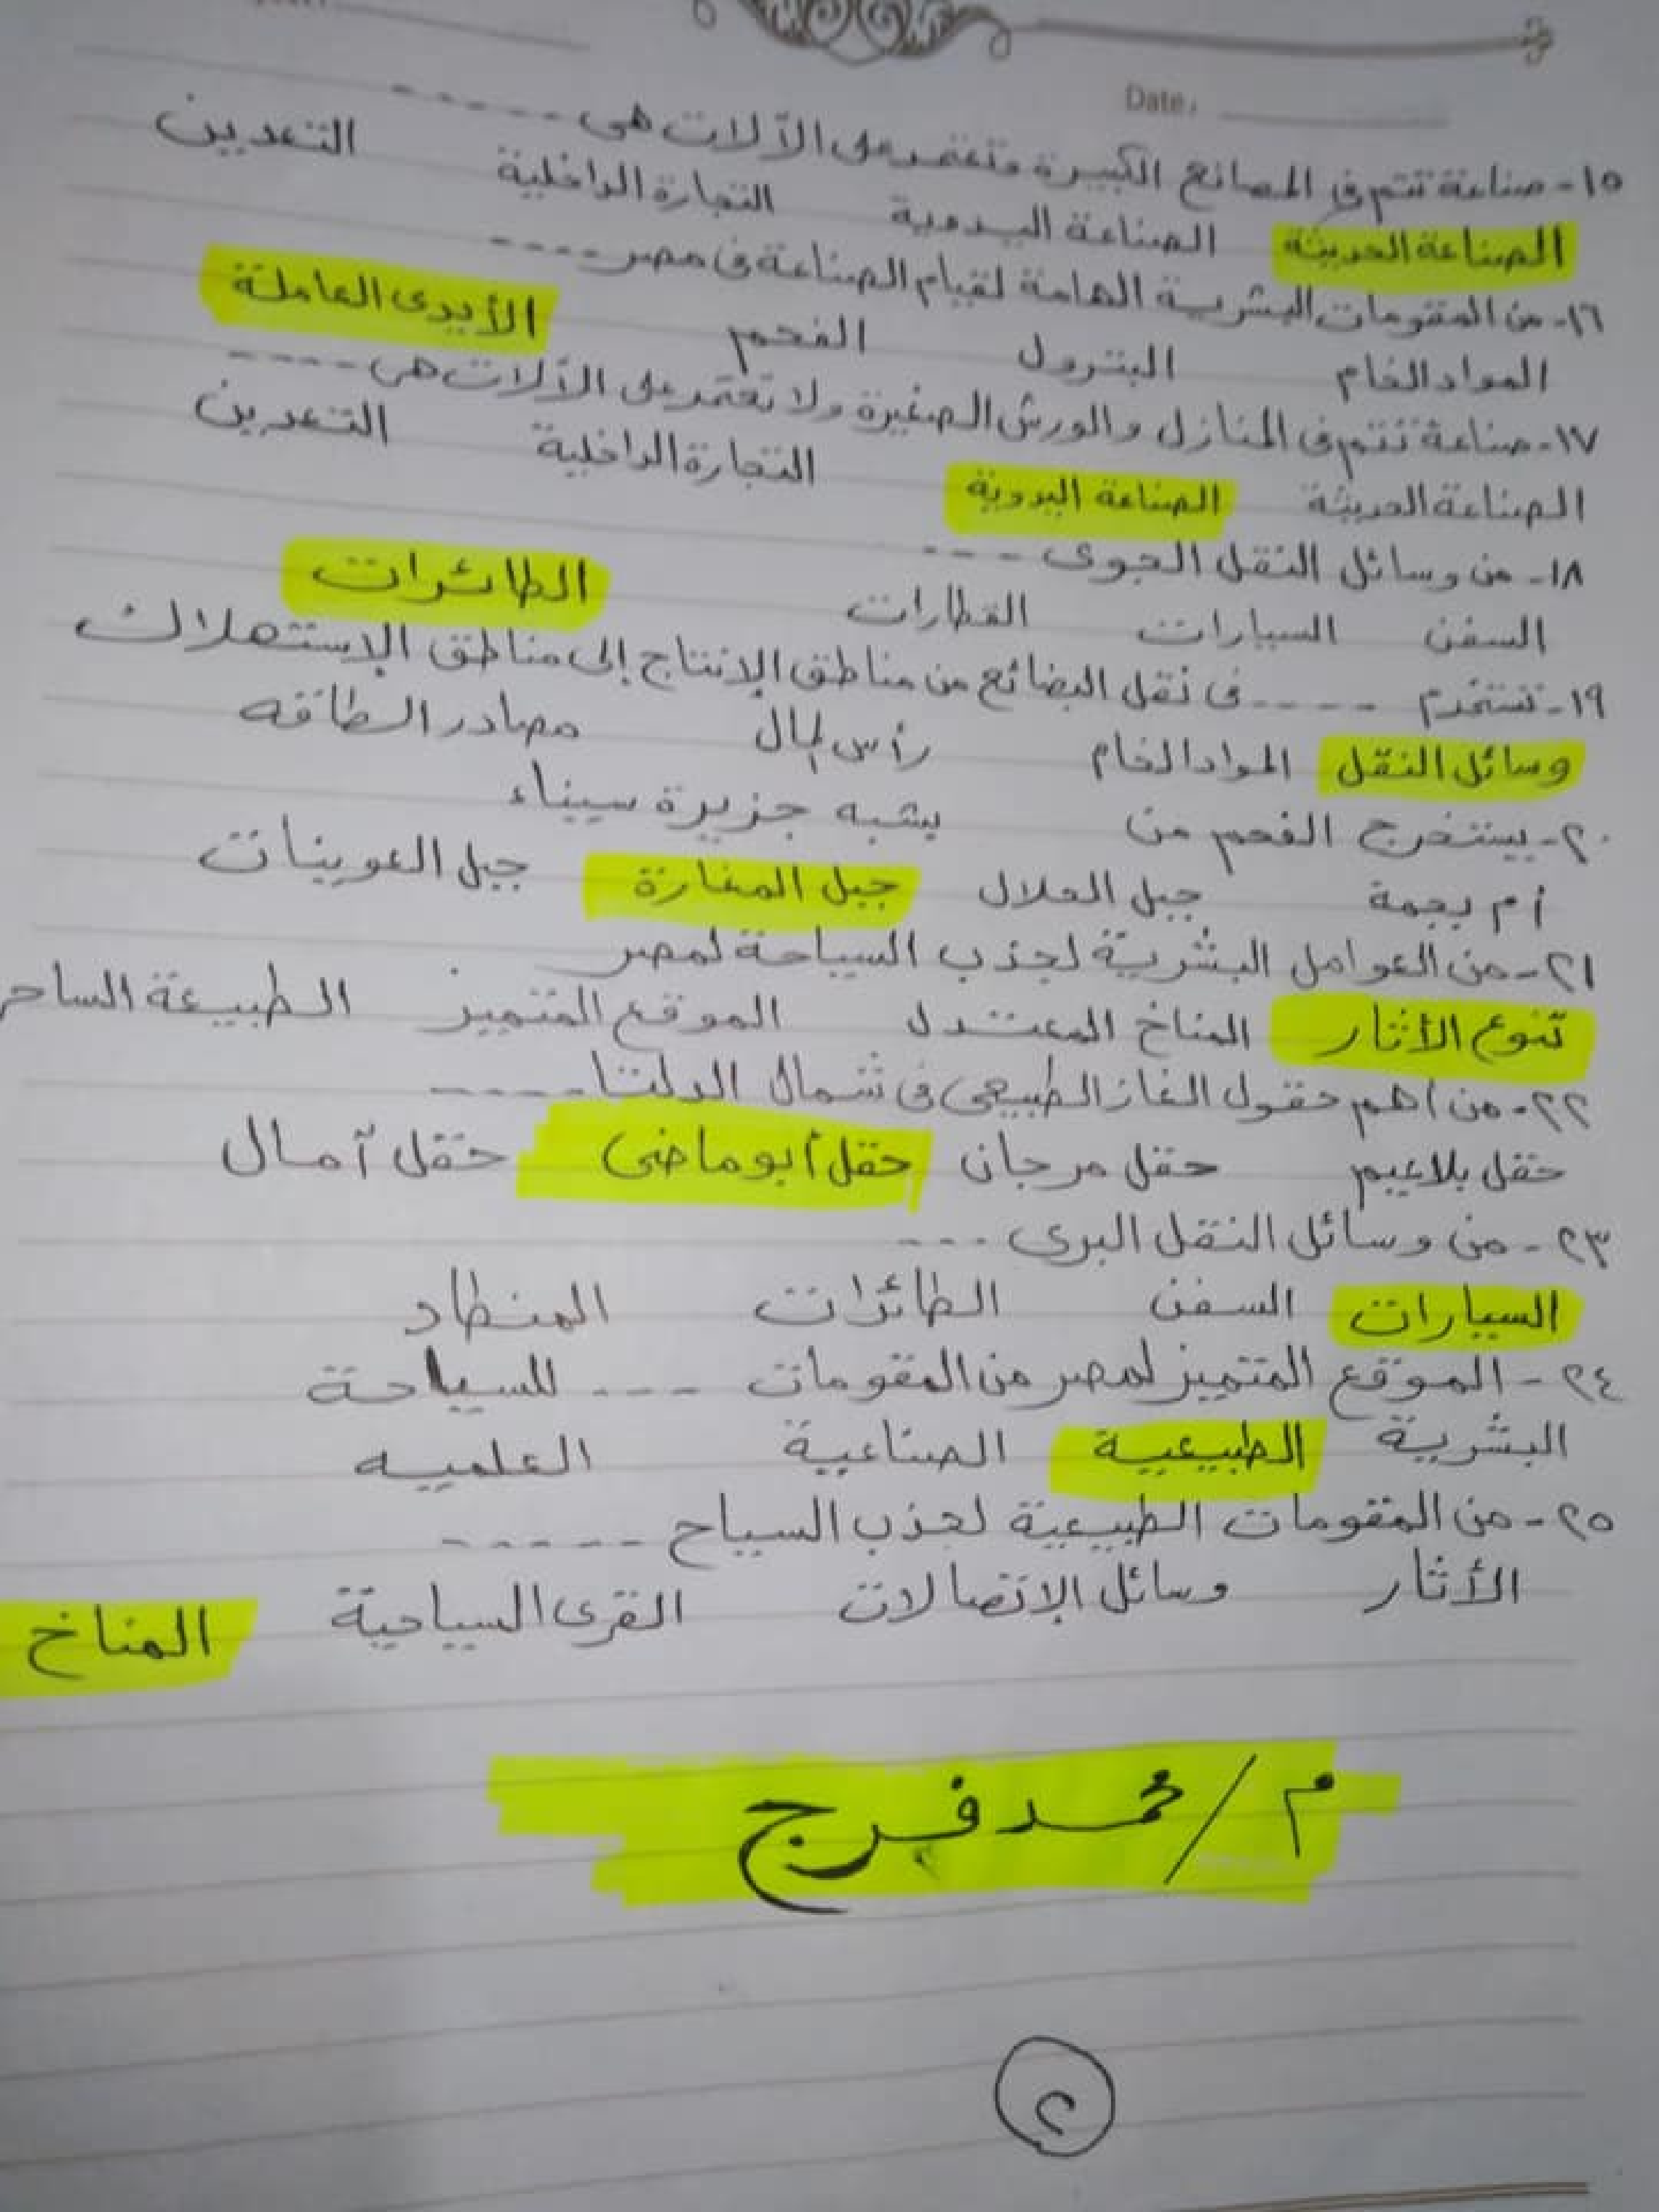 Date:
١٥- صناعة تتم فى المصانع الكبيرة وتعتمد على الآلات هى -----
الصناعة الحديثة الصناعة اليدوية التجارة الداخلية التعدين
١٦- من المقومات البشرية الهامة لقيام الصناعة فى مصر ----
المواد الخام البترول الفحم الأيدى العاملة
١٧- صناعة تتم فى المنازل والورش الصغيرة ولا تعتمد على الآلات هى ----
الصناعة الحديثة الصناعة اليدوية التجارة الداخلية التعدين
١٨- من وسائل النقل الجوى ---
السفن السيارات القطارات الطائرات
١٩- تستخدم ----- فى نقل البضائع من مناطق الإنتاج إلى مناطق الإستهلاك
وسائل النقل المواد الخام رأس المال مصادر الطاقه
٢٠- يستخرج الفحم من بشبه جزيرة سيناء
أم بجمة جبل الحلال جبل المغارة جبل العوينات
٢١- من العوامل البشرية لجذب السياحة لمصر
تنوع الأثار المناخ المعتدل الموقع المتميز الطبيعة الساحر
٢٢- من أهم حقول الغاز الطبيعى فى شمال الدلتا -----
حقل بلاعيم حقل مرجان حقل أبو ماضى حقل آمال
٢٣- من وسائل النقل البرى ---
السيارات السفن الطائرات المنطاد
٢٤- الموقع المتميز لمصر من المقومات --- للسياحة
البشرية الطبيعية الصناعية العلميه
٢٥- من المقومات الطبيعية لجذب السياح -----
الأثار وسائل الإتصالات القرى السياحية المناخ
م/ محمد فرج
٢